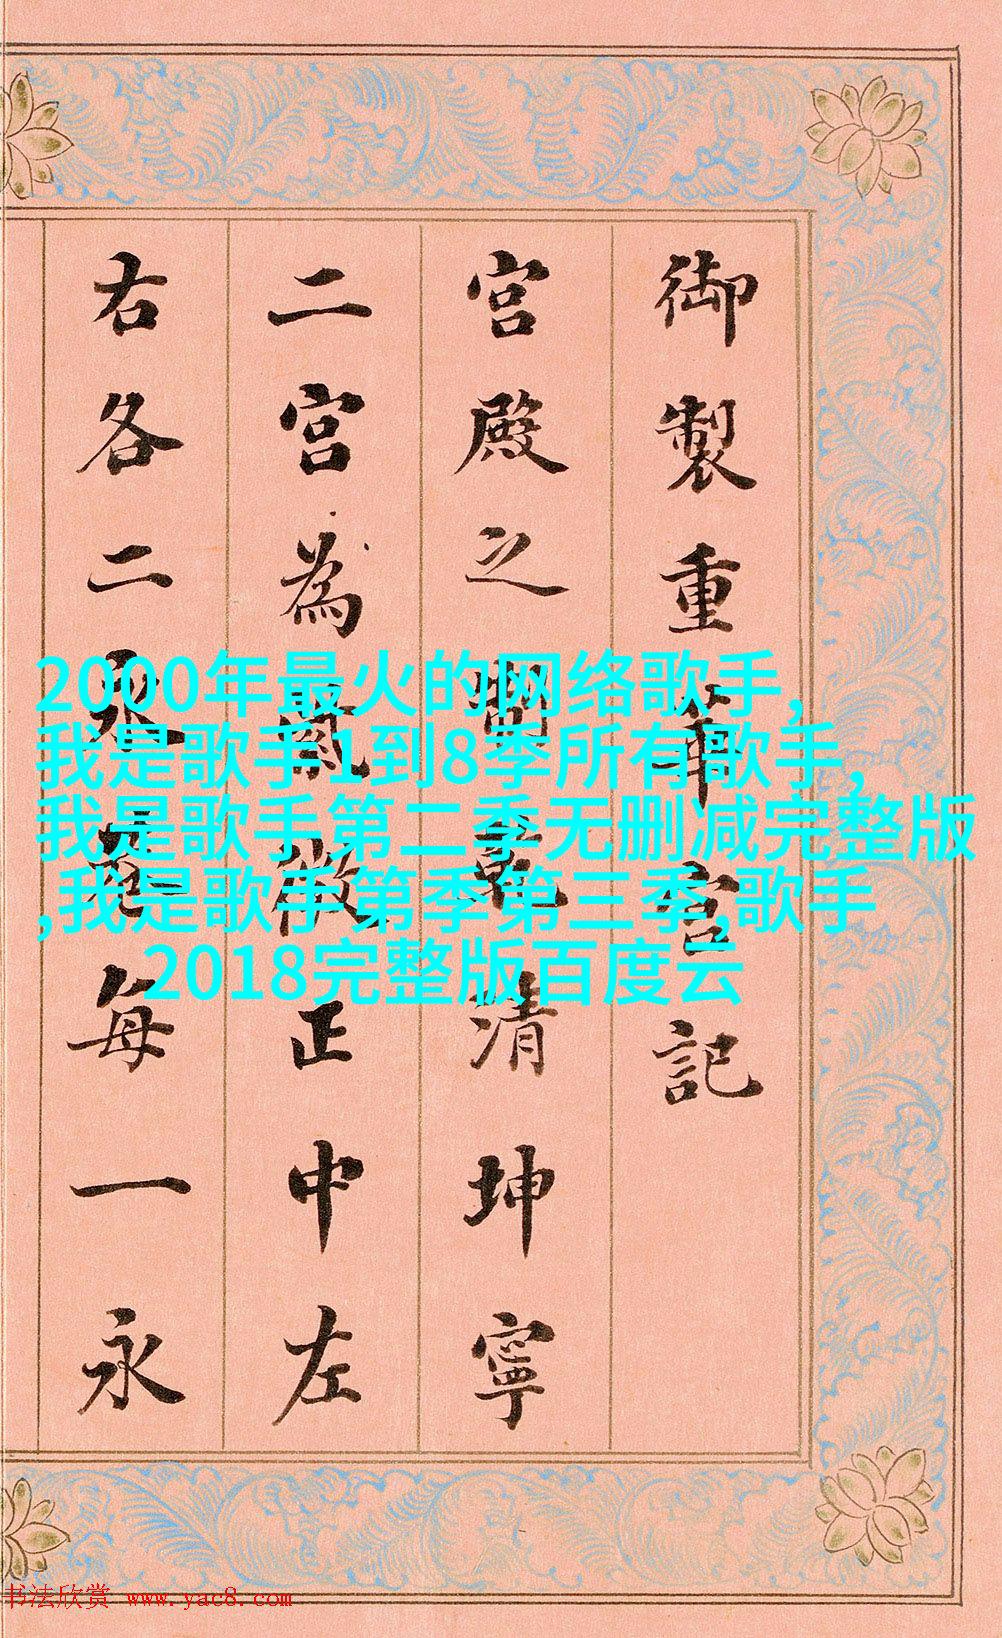 御製重華宮記
宮殿之清坤寧
二宮為微正中左
右各二永巷每一永
2000年最火的网络歌手,
我是歌手1到8季所有歌手,
我是歌手第二季无删减完整版
,我是歌手第季第三季,歌手
2018完整版百度云
书法欣赏 www.yac8.com